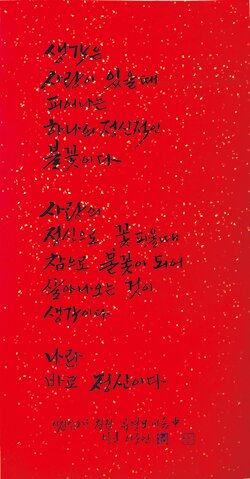 생각은
사랑이 있을 때
피어나는
하나의 정신적인
불꽃이다
사랑의
정신으로 꽃 피울 때
참으로 불꽃이 되어
살아나오는 것이
생각이다
나란
바로 정신이다